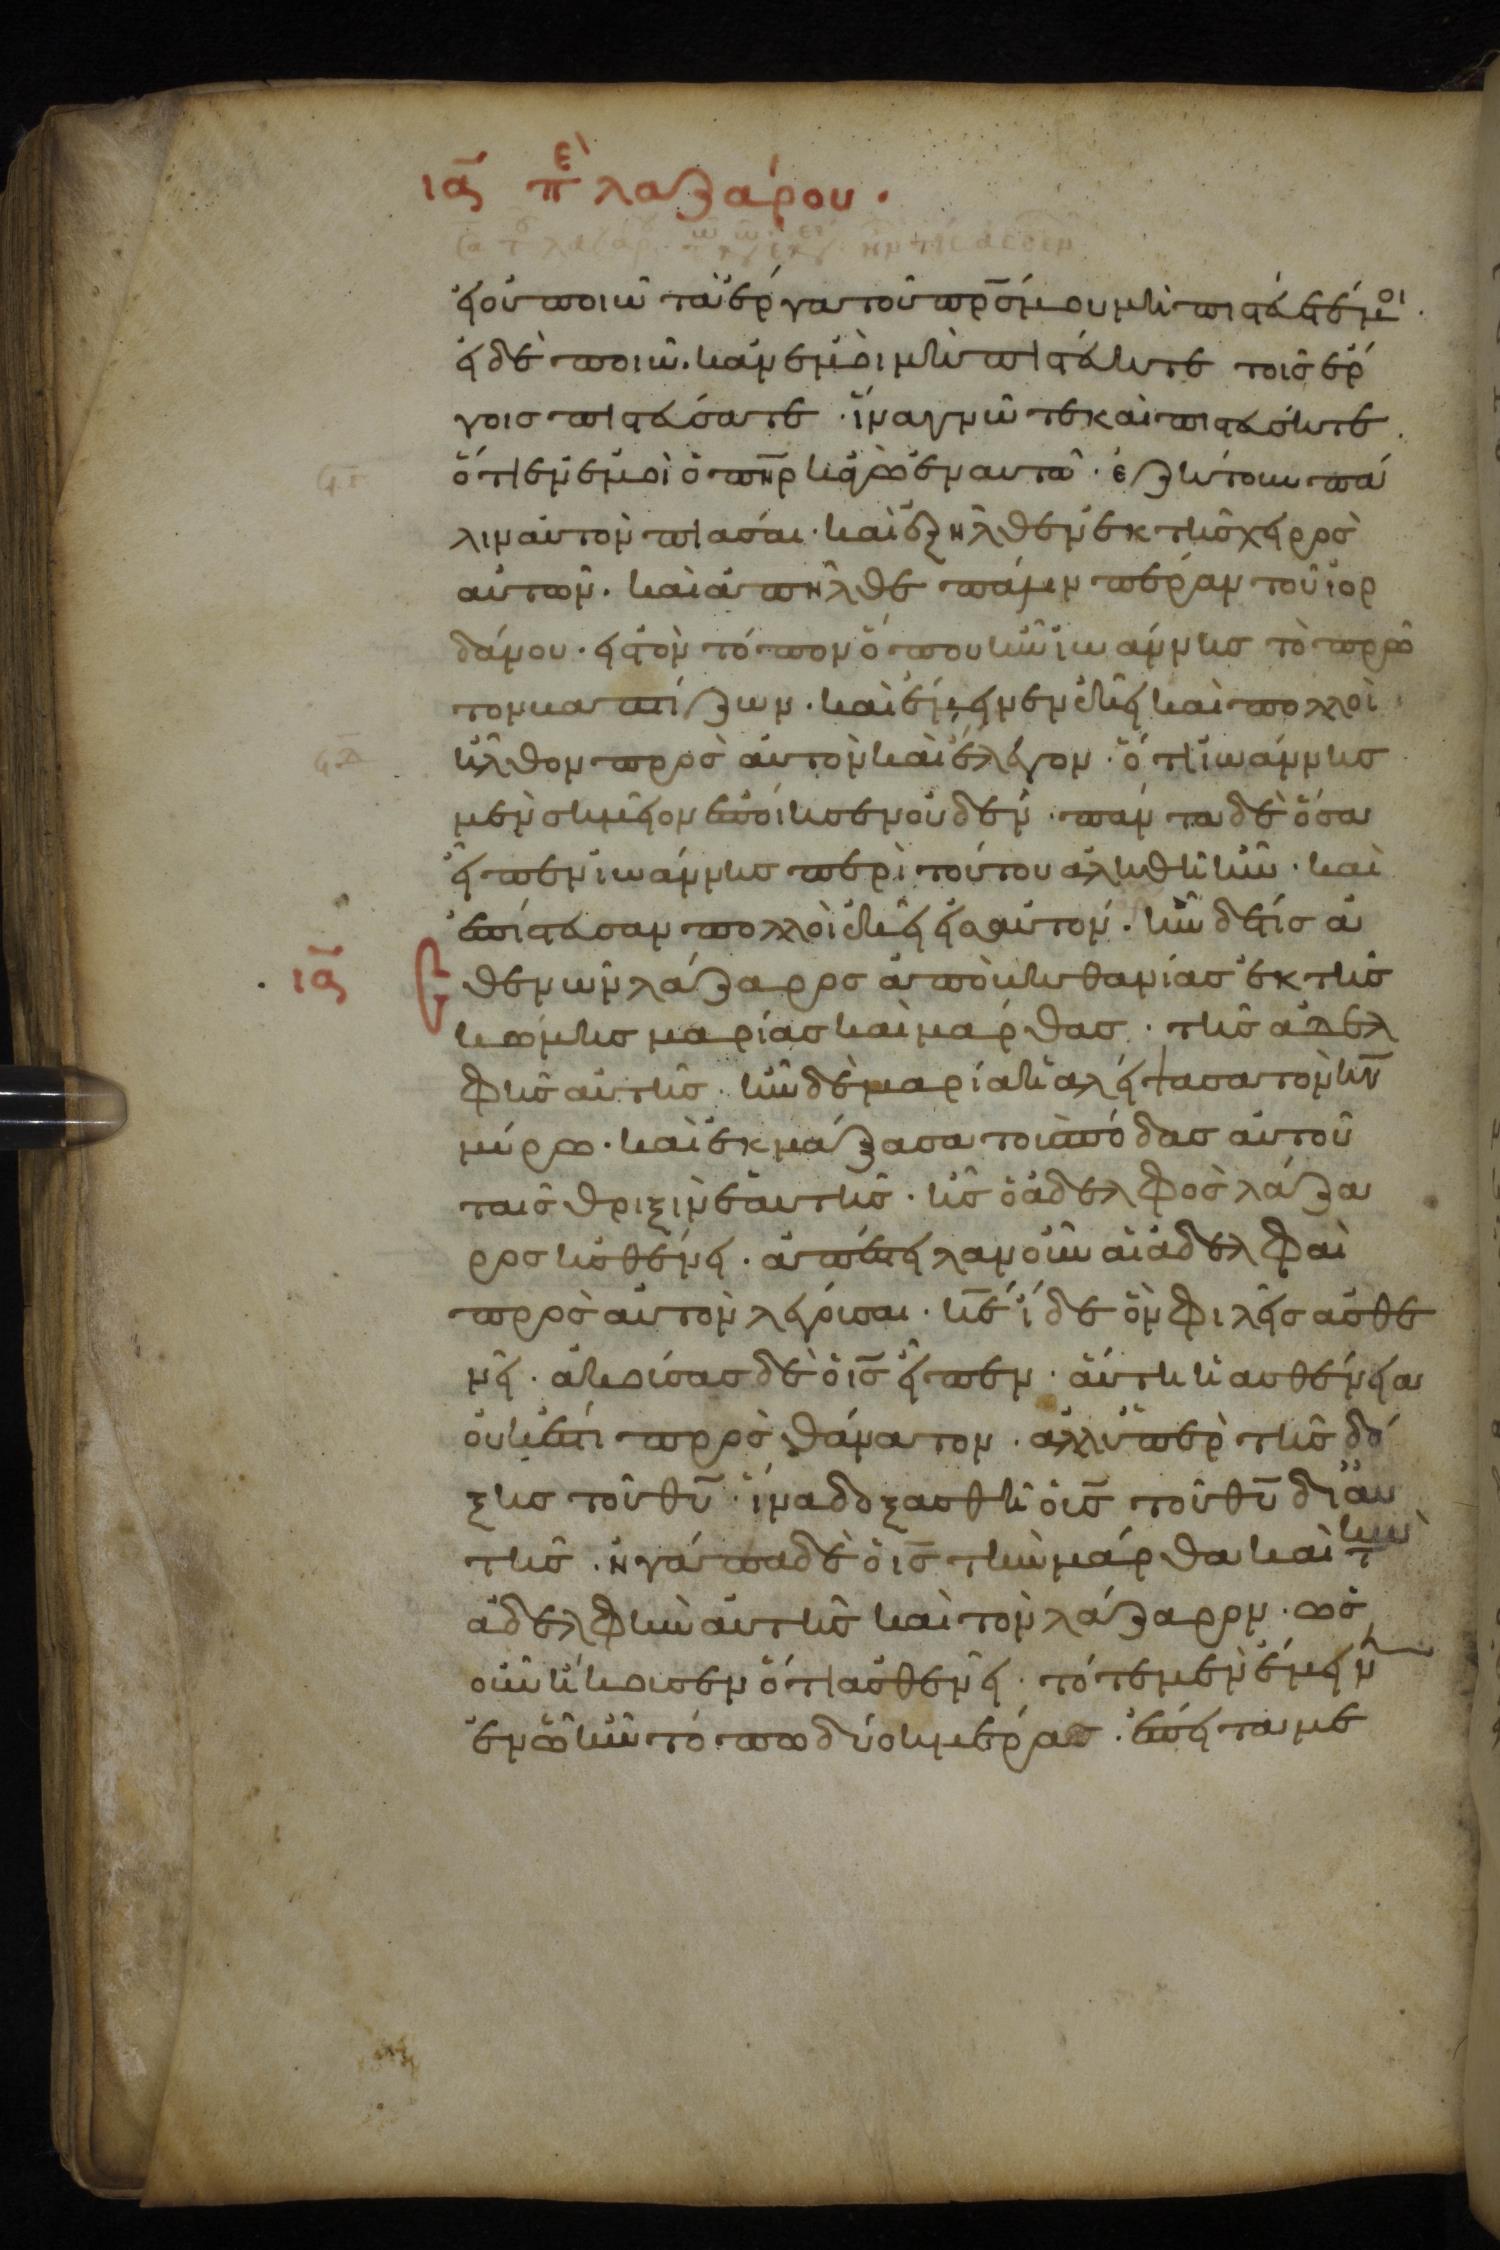 ια πε λαζάρου.
εἰ οὐ ποιῶ τὰ ἔργα τοῦ πρς μου μὴ πιστεύετέ μοι.
εἰ δὲ ποιῶ. κἂν ἐμοὶ μὴ πιστεύητε τοῖς ἔρ
γοις πιστεύσατε. ἵνα γνῶτε καὶ πιστεύσητε.
ὅτι ἐν ἐμοὶ ὁ πηρ κἀγὼ ἐν αυτῶ. ἐζήτουν πά
λιν αὐτὸν πιάσαι. καὶ ἐξῆλθεν ἐκ τῆς χειρὸς
αὐτῶν. καὶ ἀπῆλθε πάλιν πέραν τοῦ ἰορ
δάνου. εἰς τὸν τόπον ὅπου ἦν ἰωάννης τὸ πρῶ
τον βαπτίζων. καὶ ἔμεινεν ἐκεῖ καὶ πολλοὶ
ἦλθον πρὸς αὐτὸν καὶ ἔλεγον. ὅτι ἰωάννης
μὲν σημεῖον ἐποίησεν οὐδέν. πάντα δὲ ὅσα
εἶπεν ἰωάννης περὶ τούτου ἀληθῆ ἦν. καὶ
ἐπίστευσαν πολλοὶ ἐκεῖ εἰς αὐτόν. ἦν δέ τις ἀ
ια σθενῶν λάζαρος ἀπὸ βηθανίας ἐκ τῆς
κώμης μαρίας καὶ μάρθας. τῆς ἀδελ
φῆς αὐτῆς. ἦν δὲ μαρία ἡ ἀλείψασα τὸν κν
μύρω. καὶ ἐκμάξασα τοὺς πόδας αὐτοῦ
ταῖς θριξὶν ἑαυτῆς. ἧς ὁ ἀδελφὸς λάζα
ρος ἠσθένει. ἀπέστειλαν οὖν αἱ ἀδελφαὶ
πρὸς αὐτὸν λέγουσαι. κε ἴδε ὃν φιλεῖς ἀσθε
νεῖ. ἀκούσας δὲ ὁ ις εἶπεν. αὕτη ἡ ἀσθένεια
οὐκ ἔστι πρὸς θάνατον. ἀλλ' ὑπὲρ τῆς δό
ξης τοῦ θυ. ἵνα δοξασθῆ ὁ υς τοῦ θυ δι αὐ
τῆς. ἠγάπα δὲ ὁ ις τὴν μάρθα καὶ τὴν
ἀδελφὴν αὐτῆς καὶ τὸν λάζαρον. ὡς
οὖν ἤκουσεν ὅτι ἀσθενεῖ. τότε μὲν ἔμεινεν
ἐν ὧ ἦν τόπω δύο ἡμέρας. ἔπειτα με